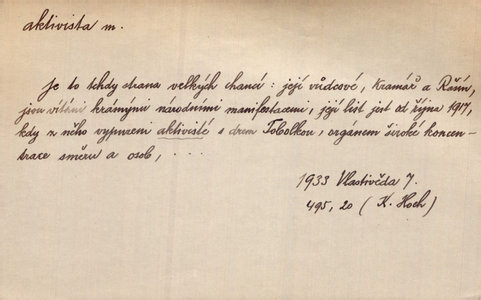 aktivista m.
Je to tehdy strana velkých chanců: její vůdcové, Kramář a Rašín,
jsou vítáni krásnými národními manifestacemi, její list jest od října 1917,
kdy z něho vypuzeni aktivisté s drem Tobolkou, orgánem široké koncen-
trace směrů a osob, . . .
1933 Vlastivěda 7.
495, 20 (K. Hoch)